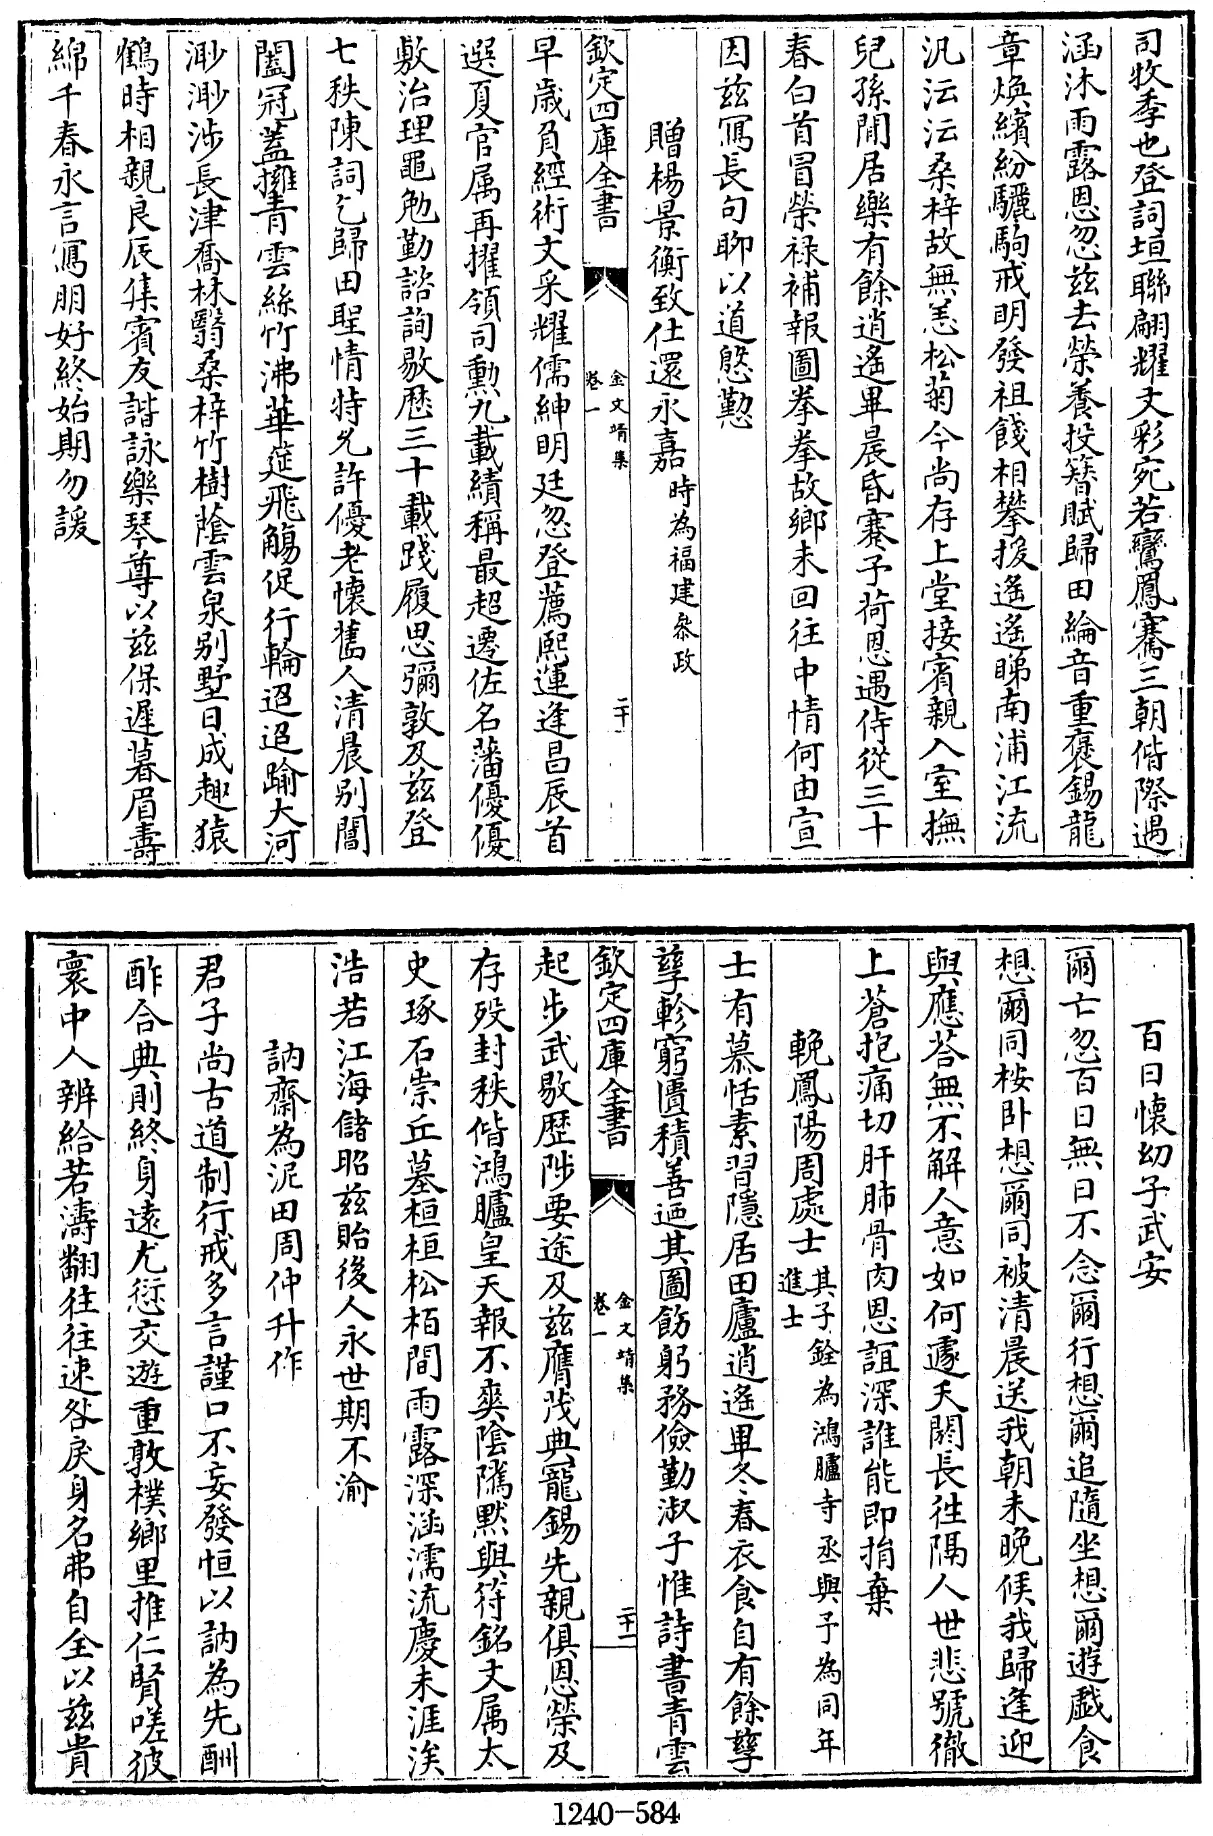 司牧季也登詞垣聯翩耀文彩宛若鸞鳳騫三朝偕際遇
涵沐雨露恩忽兹去榮養投簮賦歸田綸音重褒錫龍
章煥繽紛驪駒戒明發祖餞相攀援遙遙睇南浦江流
汎沄沄桑梓故無恙松菊今尚存上堂接賓親入室撫
兒孫閒居樂有餘逍遙畢晨昏蹇予荷恩遇侍從三十
春白首冒榮禄補報圖拳拳故鄉未回往中情何由宣
因兹寫長句聊以道慇懃
贈楊景衡致仕還永嘉時為福建叅政
欽定四庫全書
金文靖集
卷一
二十
早歲負經術文采耀儒紳明廷忽登薦熙運逢昌辰首
選夏官属再擢領司勲九載績稱最超遷佐名藩優優
敷治理黽勉勤諮詢敭厯三十載踐履思彌敦及兹登
七秩陳詞乞歸田聖情特允許優老懷舊人清晨别閶
闔冠蓋擁青雲絲竹沸華筵飛觴促行輪迢迢踰大河
渺渺涉長津喬林翳桑梓竹樹蔭雲泉别墅日成趣猿
鶴時相親良辰集賓友諧詠樂琴尊以兹保遲暮眉壽
綿千春永言寫朋好終始期勿諼
百日懷幼子武安
爾亡忽百日無日不念爾行想爾追隨坐想爾遊戲食
想爾同桉卧想爾同被清晨送我朝未晚候我歸逢迎
與應荅無不解人意如何遽夭閼長徃隔人世悲號徹
上蒼抱痛切肝肺骨肉恩誼深誰能即捐棄
輓鳳陽周處士其子銓為鴻臚寺丞與予為同年
進士
士有慕恬素習隱居田廬逍遙畢冬春衣食自有餘孳
孳軫窮匱積善迺其圖飭躬務儉勤淑子惟詩書青雲
欽定四庫全書
金文靖集
卷一
二十一
起步武敭歴陟要途及兹膺茂典寵錫先親俱恩榮及
存殁封秩偕鴻臚皇天報不爽陰隲黙與符銘文属太
史琢石崇丘墓桓桓松栢間雨露深涵濡流慶未涯涘
浩若江海儲昭兹貽後人永世期不渝
訥齋為泥田周仲升作
君子尚古道制行戒多言謹口不妄發恒以訥為先酬
酢合典則終身遠尤愆交遊重敦樸鄉里推仁賢嗟彼
寰中人辨給若濤翻往往速咎戾身名弗自全以兹貴
1240-584